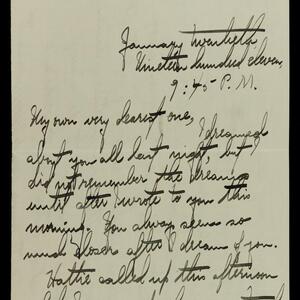 January twentieth
Nineteen hundred eleven,
9:45 P.M.
My own very dearest one,
I dreamed
about you all last night, but I
did not remember the dreams
until after I wrote to you this
morning. You always seem so
much closer after I dream of you.
Hattie called up this afternoon